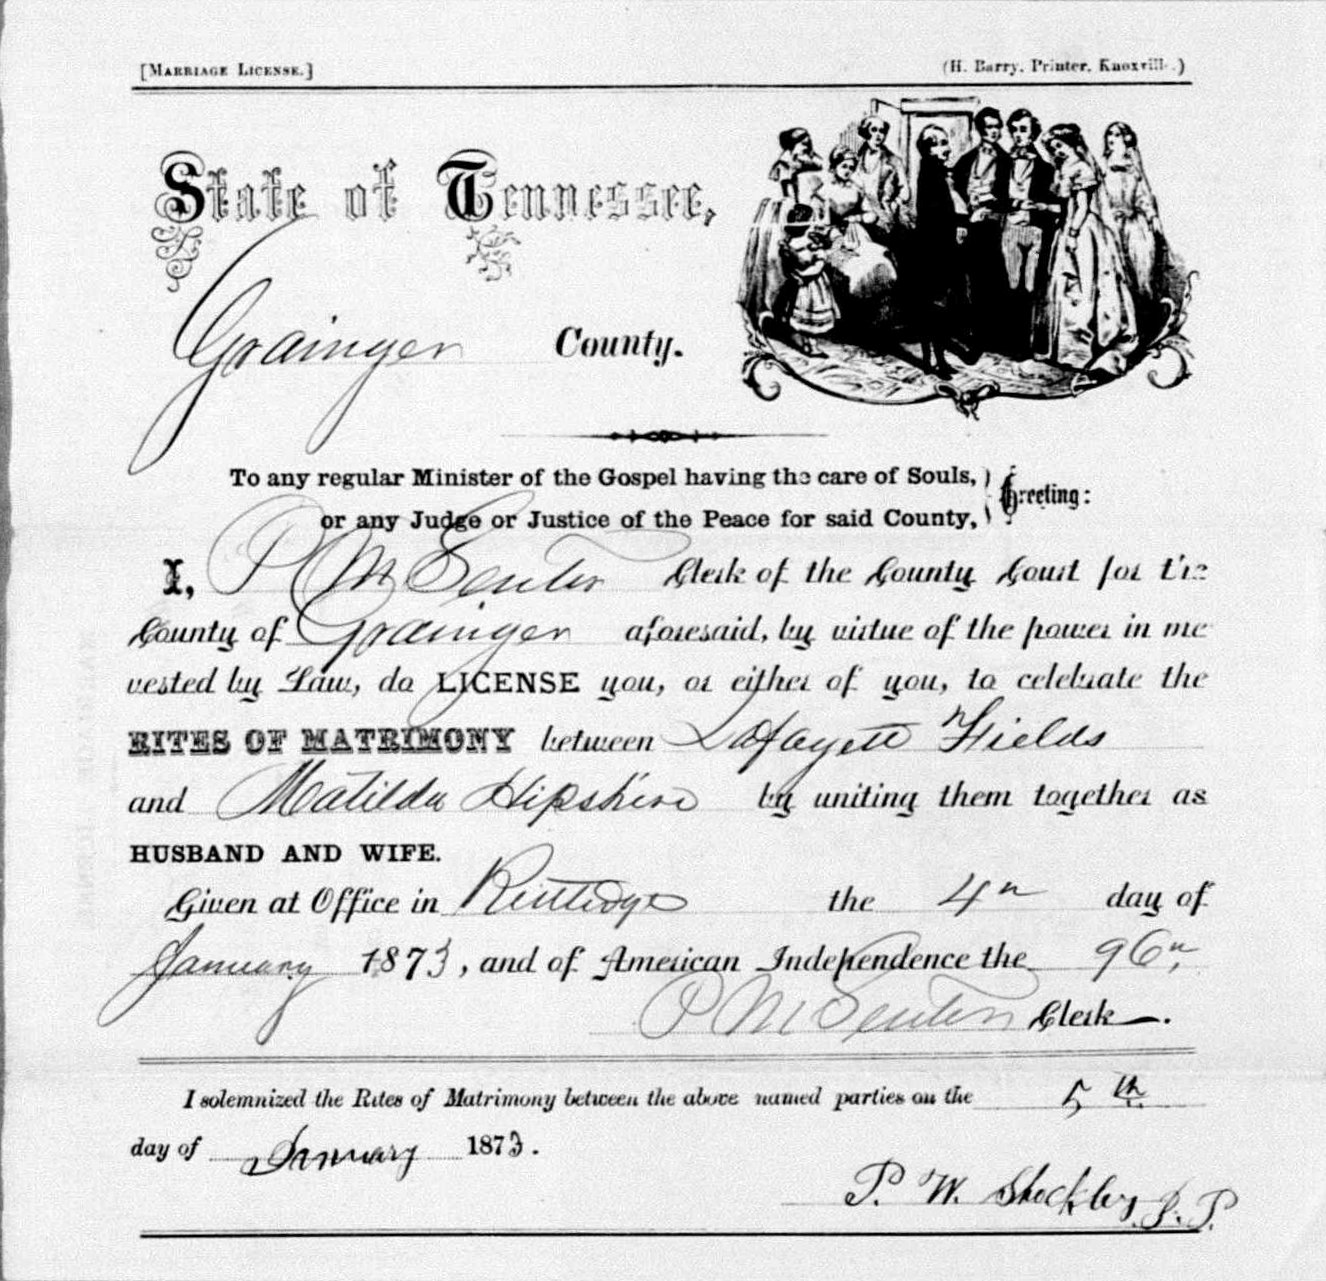 [MARRIAGE LICENSE.] (H. Barry, Printer, Knoxville.)
State of Tennessee,
Grainger County.
To any regular Minister of the Gospel having the care of Souls,
or any Judge or Justice of the Peace for said County, Greeting:
I, P M Senter Clerk of the County Court for the
County of Grainger aforesaid, by virtue of the power in me
vested by Law, do LICENSE you, or either of you, to celebrate the
RITES OF MATRIMONY between Lafayett Fields
and Matilda Hipshire by uniting them together as
HUSBAND AND WIFE.
Given at Office in Rutledge the 4th day of
January 1873, and of American Independence the 96th
P M Senter Clerk.
I solemnized the Rites of Matrimony between the above named parties on the 5th
day of January 1873.
P. W. Shockley J. P.